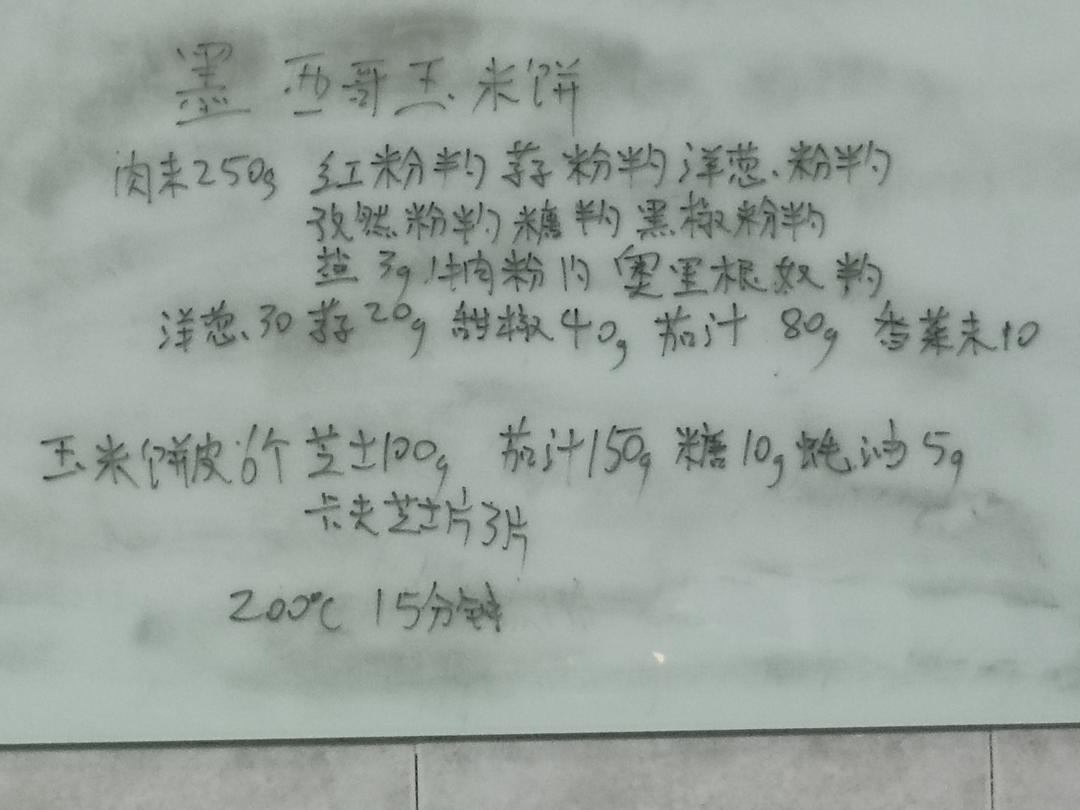 墨西哥玉米饼
肉末250g 红粉半勺 蒜粉半勺 洋葱粉半勺
孜然粉半勺 糖半勺 黑椒粉半勺
盐3g 牛肉粉1勺 奥里根奴半勺
洋葱30 蒜20g 甜椒40g 茄汁80g 香菜末10
玉米饼皮6个 芝士100g 茄汁150g 糖10g 蚝油5g
卡夫芝士片3片
200℃ 15分钟